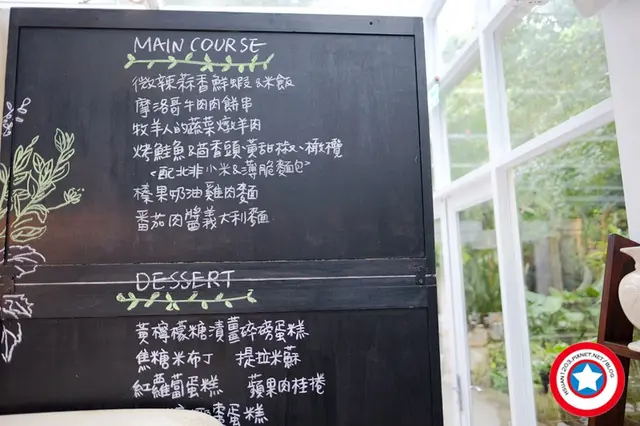 MAIN COURSE
微辣蒜香鮮蝦&米飯
摩洛哥牛肉肉餅串
牧羊人的蔬菜燉羊肉
烤鮭魚&茴香頭、黃甜椒、橄欖
<配北非小米&薄脆麵包>
榛果奶油雞肉麵
番茄肉醬義大利麵
DESSERT
黃檸檬糖漬薑碎磅蛋糕
焦糖米布丁 提拉米蘇
紅蘿蔔蛋糕 蘋果肉桂捲
蛋糕
HSUAN1203.PIXNET.NET/BLOG